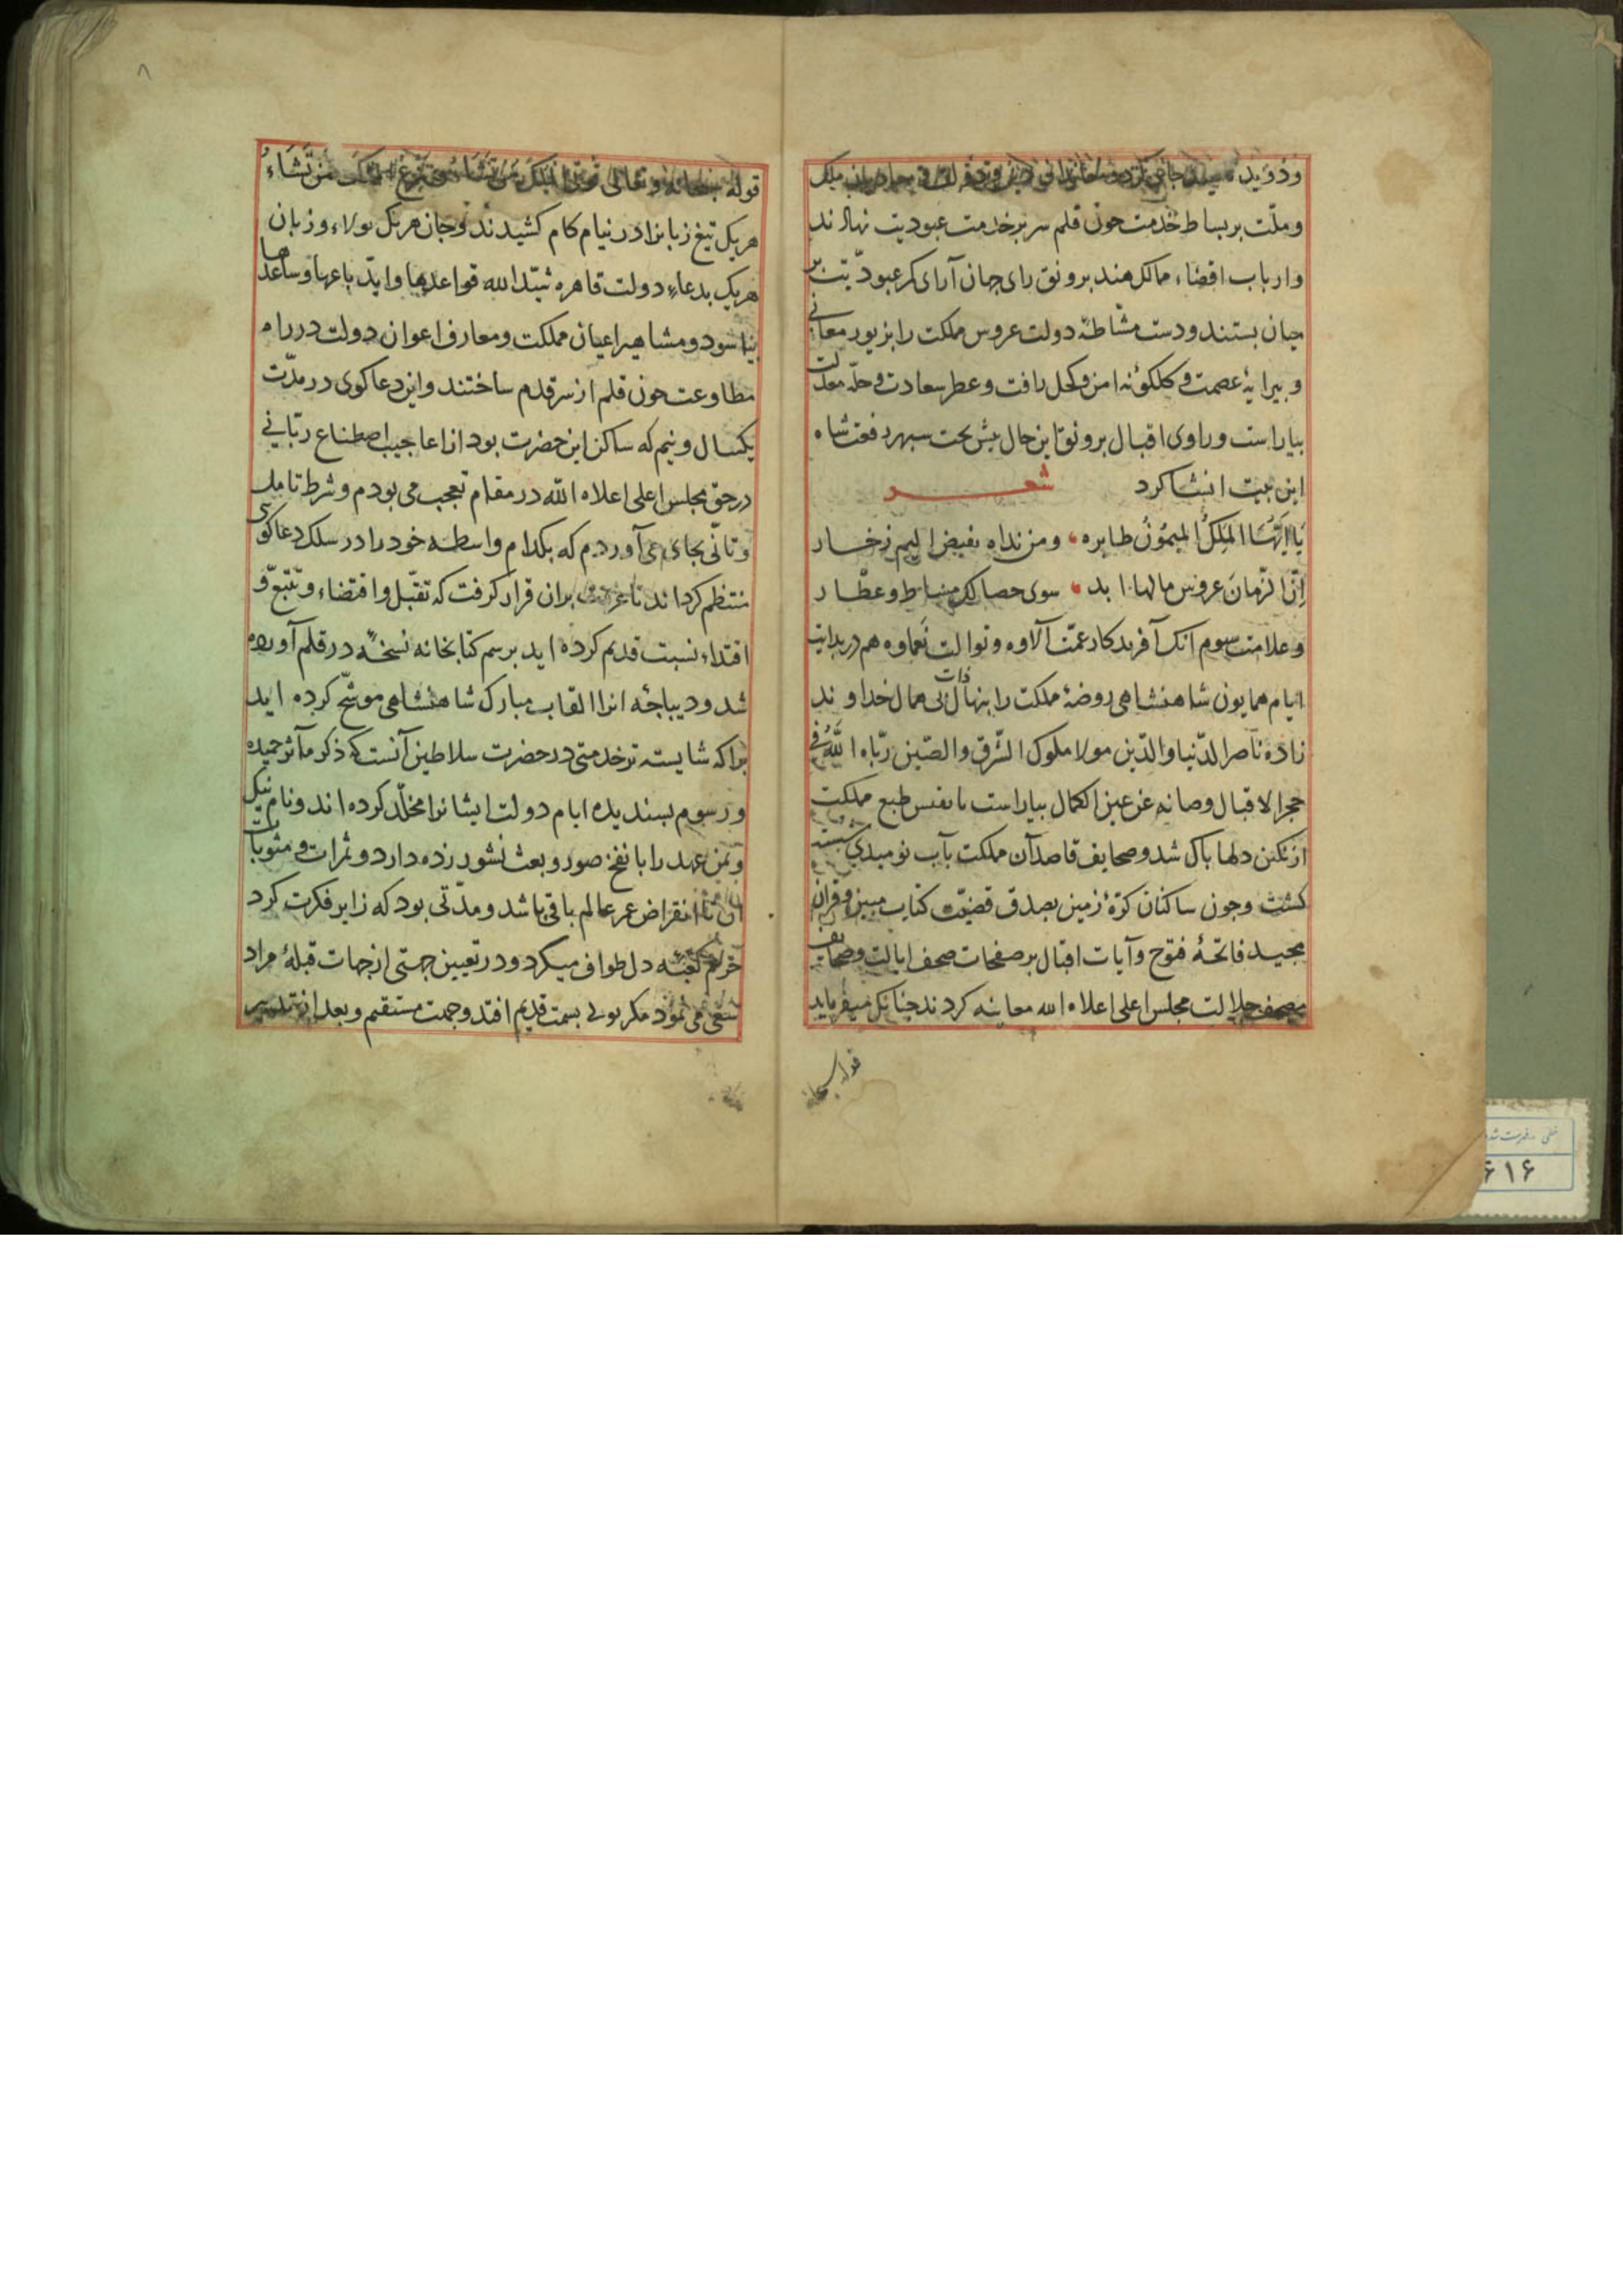 و ملّت بر بساط خدمت چون قلم سر بر خدمت عبودیت نهادند
و ارباب اقضاء ممالک هند بر وفق رای جهان آرای کمر عبودیّت بر
میان بستند و دست مشاطهٔ دولت عروس مملکت را بزیور معانی
و پیرایهٔ عصمت و کلکونهٔ امن و کحل رافت و عطر سعادت و حلّه معدلت
بیاراست و راوی اقبال بر وفق این حال پیش تخت سپهر رفعت شاه
این بیت انشا کرد شعر
یا ایّها الملک المیمون طایره ومن نداه یفیض الیم زخار
انّ الزّمان عروس مالها ابد سوی حصالک مشاط و عطّار
و علامت سوم آنک آفریدکار عمّت آلاوه و توالت نعماوه هم در بدایت
ایام همایون شاهنشاهی روضهٔ مملکت را بنهال ذات بی همال خداوند
زاده ناصر الدّنیا والدّین مولا ملوک الشّرق والصّین ربّاه اللّه فی
حجر الاقبال وصانه عن عین الکمال بیاراست تا نفس طبع مملکت
از دلها پاک شد و صحایف قاصدآن مملکت بآب نومیدی شسته
کشت و چون ساکنان کرهٔ زمین بصدق قضیّت کتاب مبین و قرآن
مجید فاتحهٔ فتوح و آیات اقبال بر صفحات صحف ایالت و صحایف
مصحف جلالت مجلس اعلی اعلاه الله معاینه کردند چنانک میفرماید
قوله سبحانه
۸
قوله سبحانه و تعالی تؤتی الملک من تشاء و تنزع الملک ممّن تشاء
هریک تیغ زبانرا در نیام کام کشیدند و جان هریک بولاء و زبان
هریک بدعاء دولت قاهره شیّد الله قواعدها و ایّد باعها و ساعدها
نیاسود و مشاهیر اعیان مملکت و معارف اعوان دولت در راه
مطاوعت چون قلم از سر قدم ساختند و این دعاکوی در مدّت
یکسال و نیم که ساکن این حضرت بود از اعاجیب اصطناع ربّانی
در حق مجلس اعلی اعلاه اللّه در مقام تعجب می بودم و شرط تامل
و تانّی بجای می آوردم که بکدام واسطه خود را در سلک دعاکوی
منتظم کرداند تا عزیمت بران قرار کرفت که تقبّل و اقتضاء و تتبّع و
اقتداء نسبت قدیم کرده اید برسم کتابخانه نسخهٔ در قلم آورده
شد و دیباجهٔ آنرا القاب مبارک شاهنشاهی موشّح کرده اید
براکه شایسته تر خدمتی در حضرت سلاطین آنست که ذکر مآثر حمیده
و رسوم پسندیده ایام دولت ایشانرا مخلّد کرده اند و نام نیک
و یمن عهد را با نفخ صور و بعث نشور زنده دارد و ثمرات و مثوبات
آن تا انقراض عمر عالم باقی باشد و مدّتی بود که زایر فکرت کرد
حرم کعبه دل طواف میکرد و در تعیین جهتی از جهات قبلهٔ مراد
سعی می نمود مکر بویی بسمت قدیم افتد و جهت مستقیم و بعد از تدبیر
۶۱۶